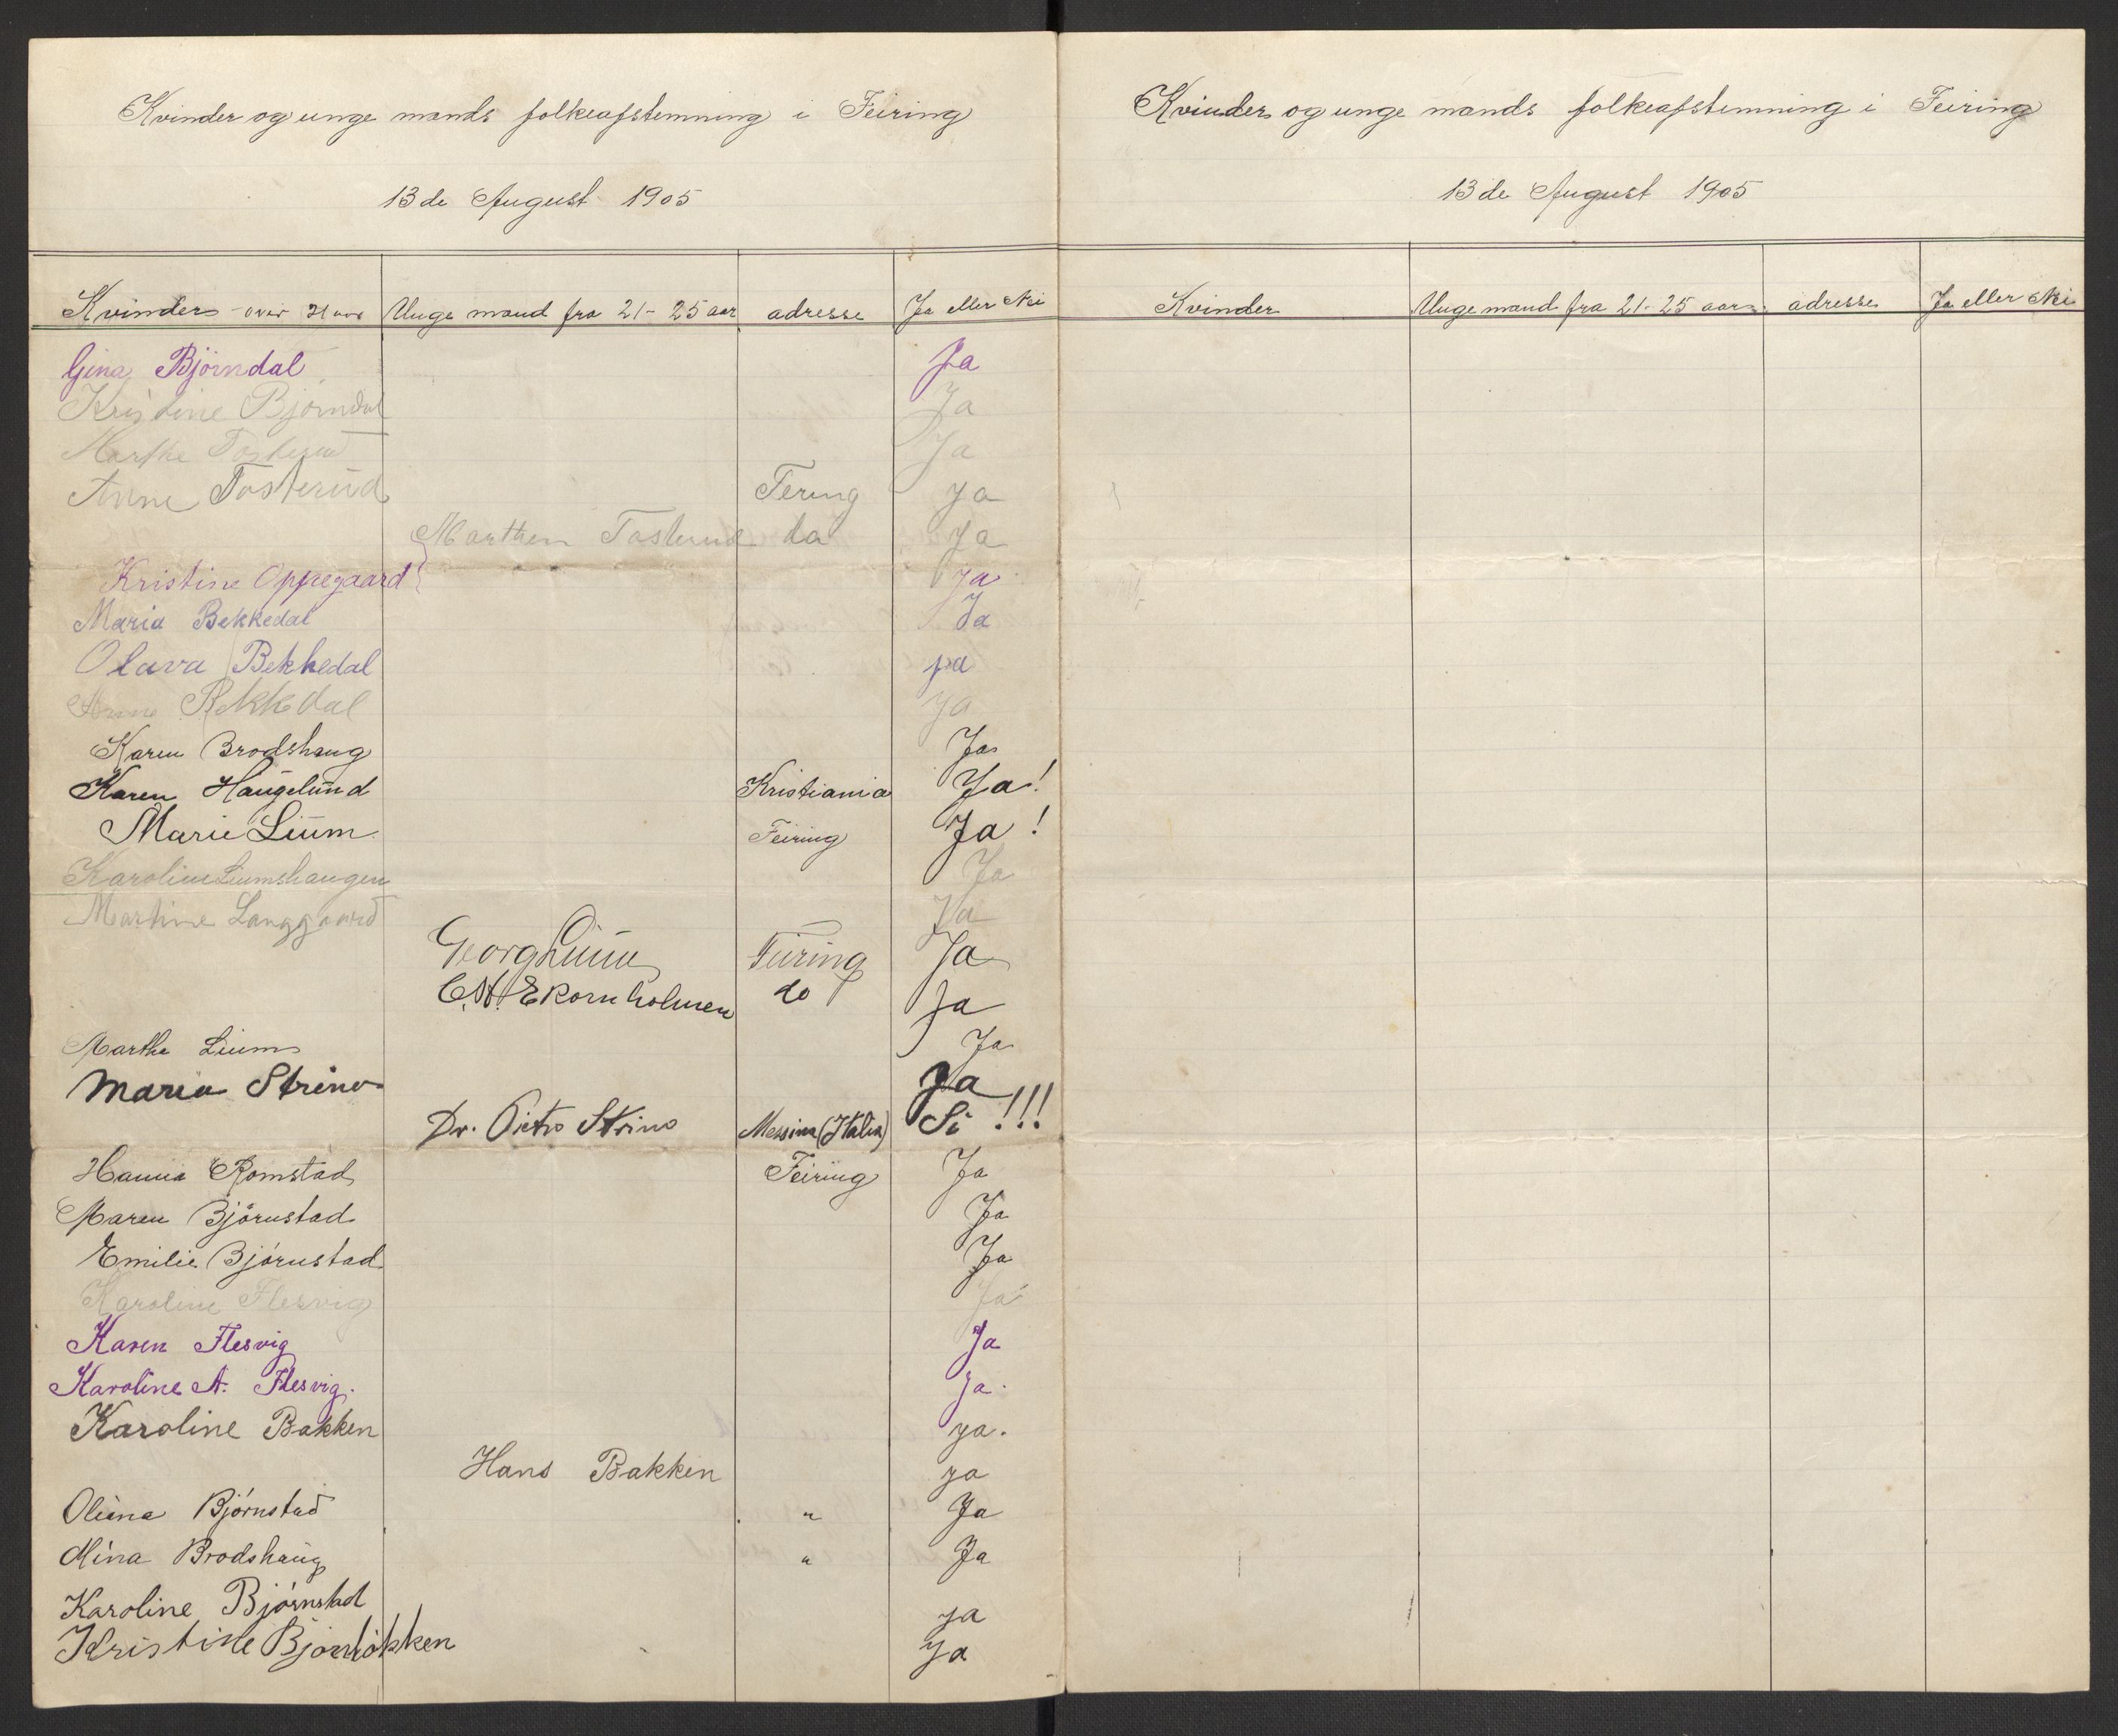 Kvinder og unge mænds folkeafstemning i Feiring
13de August 1905
Kvinder over 21 aar Unge mænd fra 21-25 aar adresse Ja eller Nei
Gina Björndal Ja
Kristine Björndal Ja
Marthe Tosterud Ja
Anne Tosterud Fering Ja
Marthen Tosterud do Ja
Kristine Oppegaard Ja
Maria Bekkedal Ja
Olava Bekkedal ja
Anne Bekkedal Ja
Karen Brodshaug Ja
Karen Haugelund Kristiania Ja!
Marie Lium Feiring Ja!
Karoline Liumshaugen Ja
Martine Langgaard Ja
Georg Lium Feiring Ja
Ekornholmen do Ja
Marthe Lium Ja
Maria Strino Ja
Dr. Pietro Strino Messina (Italia) Si!!!
Hanna Romstad Feiring Ja
Maren Björnstad Ja
Emilie Björnstad Ja
Karoline Flesvig Ja
Karen Flesvig Ja
Karoline A. Flesvig. Ja.
Karoline Bakken ja.
Hans Bakken ja
Oliana Björnstad " Ja
Mina Brodshaug " Ja
Karoline Björnstad ja
Kristine Björnlökken ja
Kvinder og unge mænds folkeafstemning i Feiring
13de August 1905
Kvinder Unge mænd fra 21-25 aar adresse Ja eller Nei